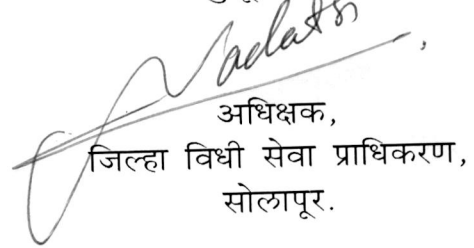 अधिक्षक,
जिल्हा विधी सेवा प्राधिकरण,
सोलापूर.